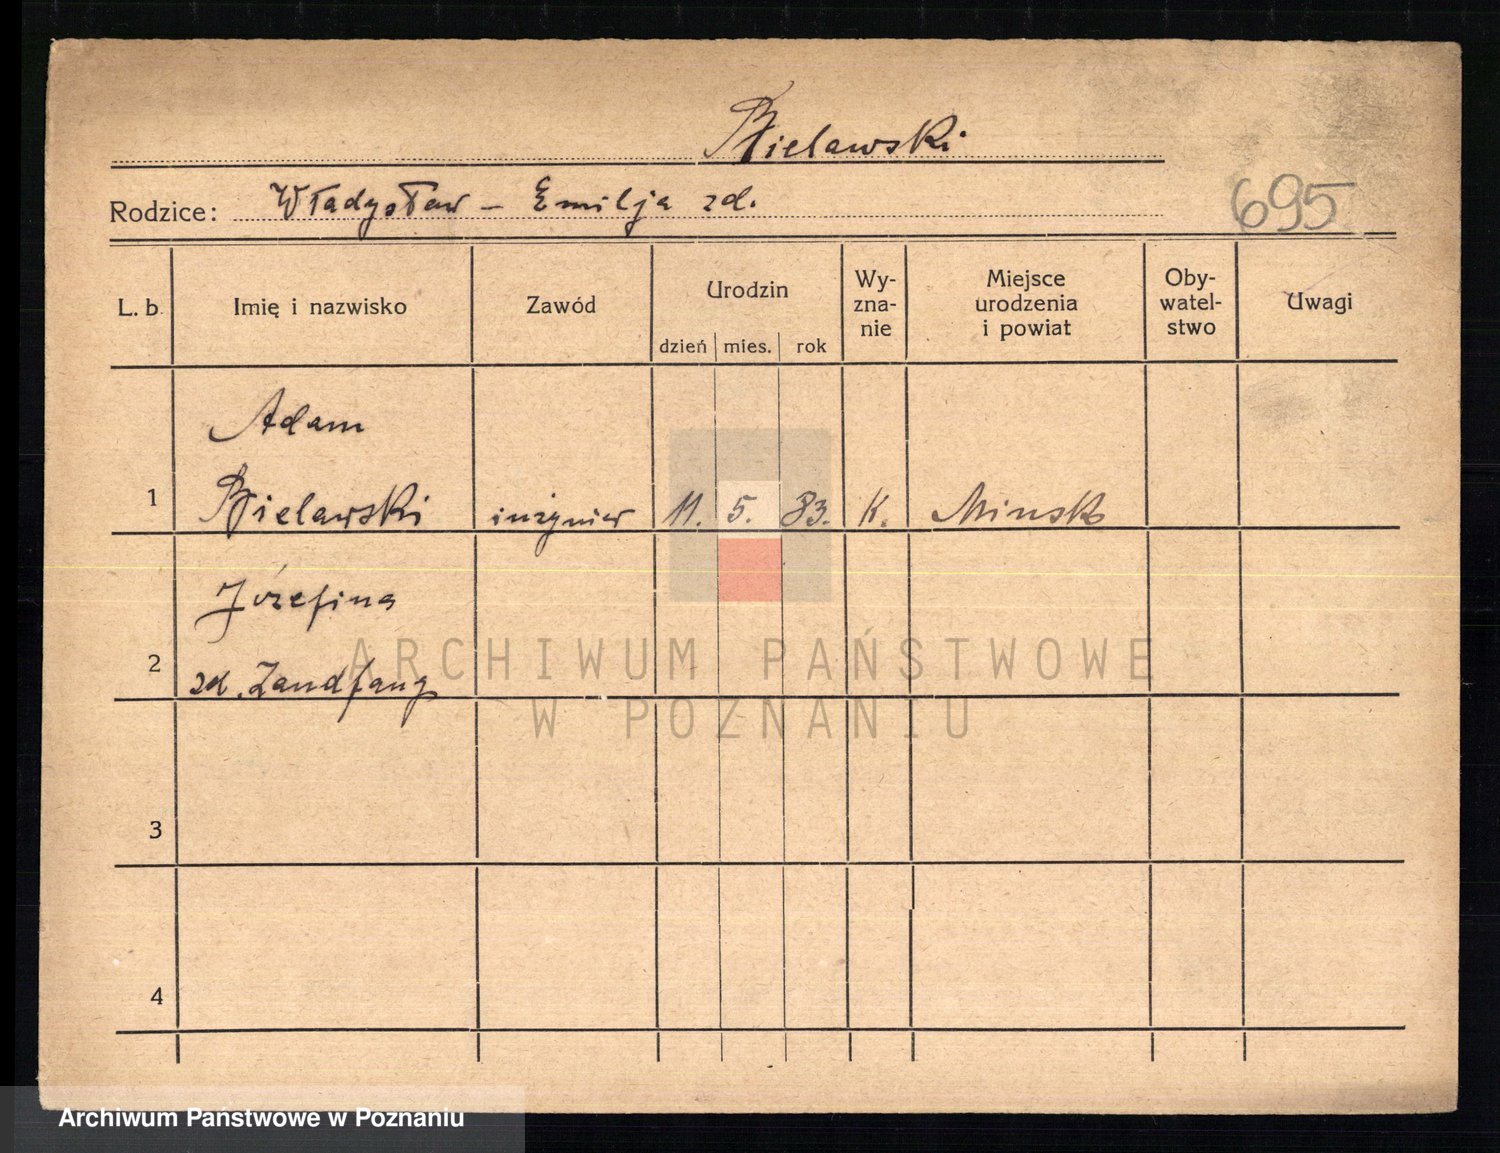 Bielawski
Rodzice: Władysław – Emilja zd.
695
L. b. Imię i nazwisko Zawód Urodzin Wy-zna-nie Miejsce urodzenia i powiat Oby-watel-stwo Uwagi
dzień mies. rok
Adam
1 Bielawski inżynier 11. 5. 83. K. Minsk
Józefina
2 zd. Zandfang
3
4
ARCHIWUM PAŃSTWOWE
W POZNANIU
Archiwum Państwowe w Poznaniu